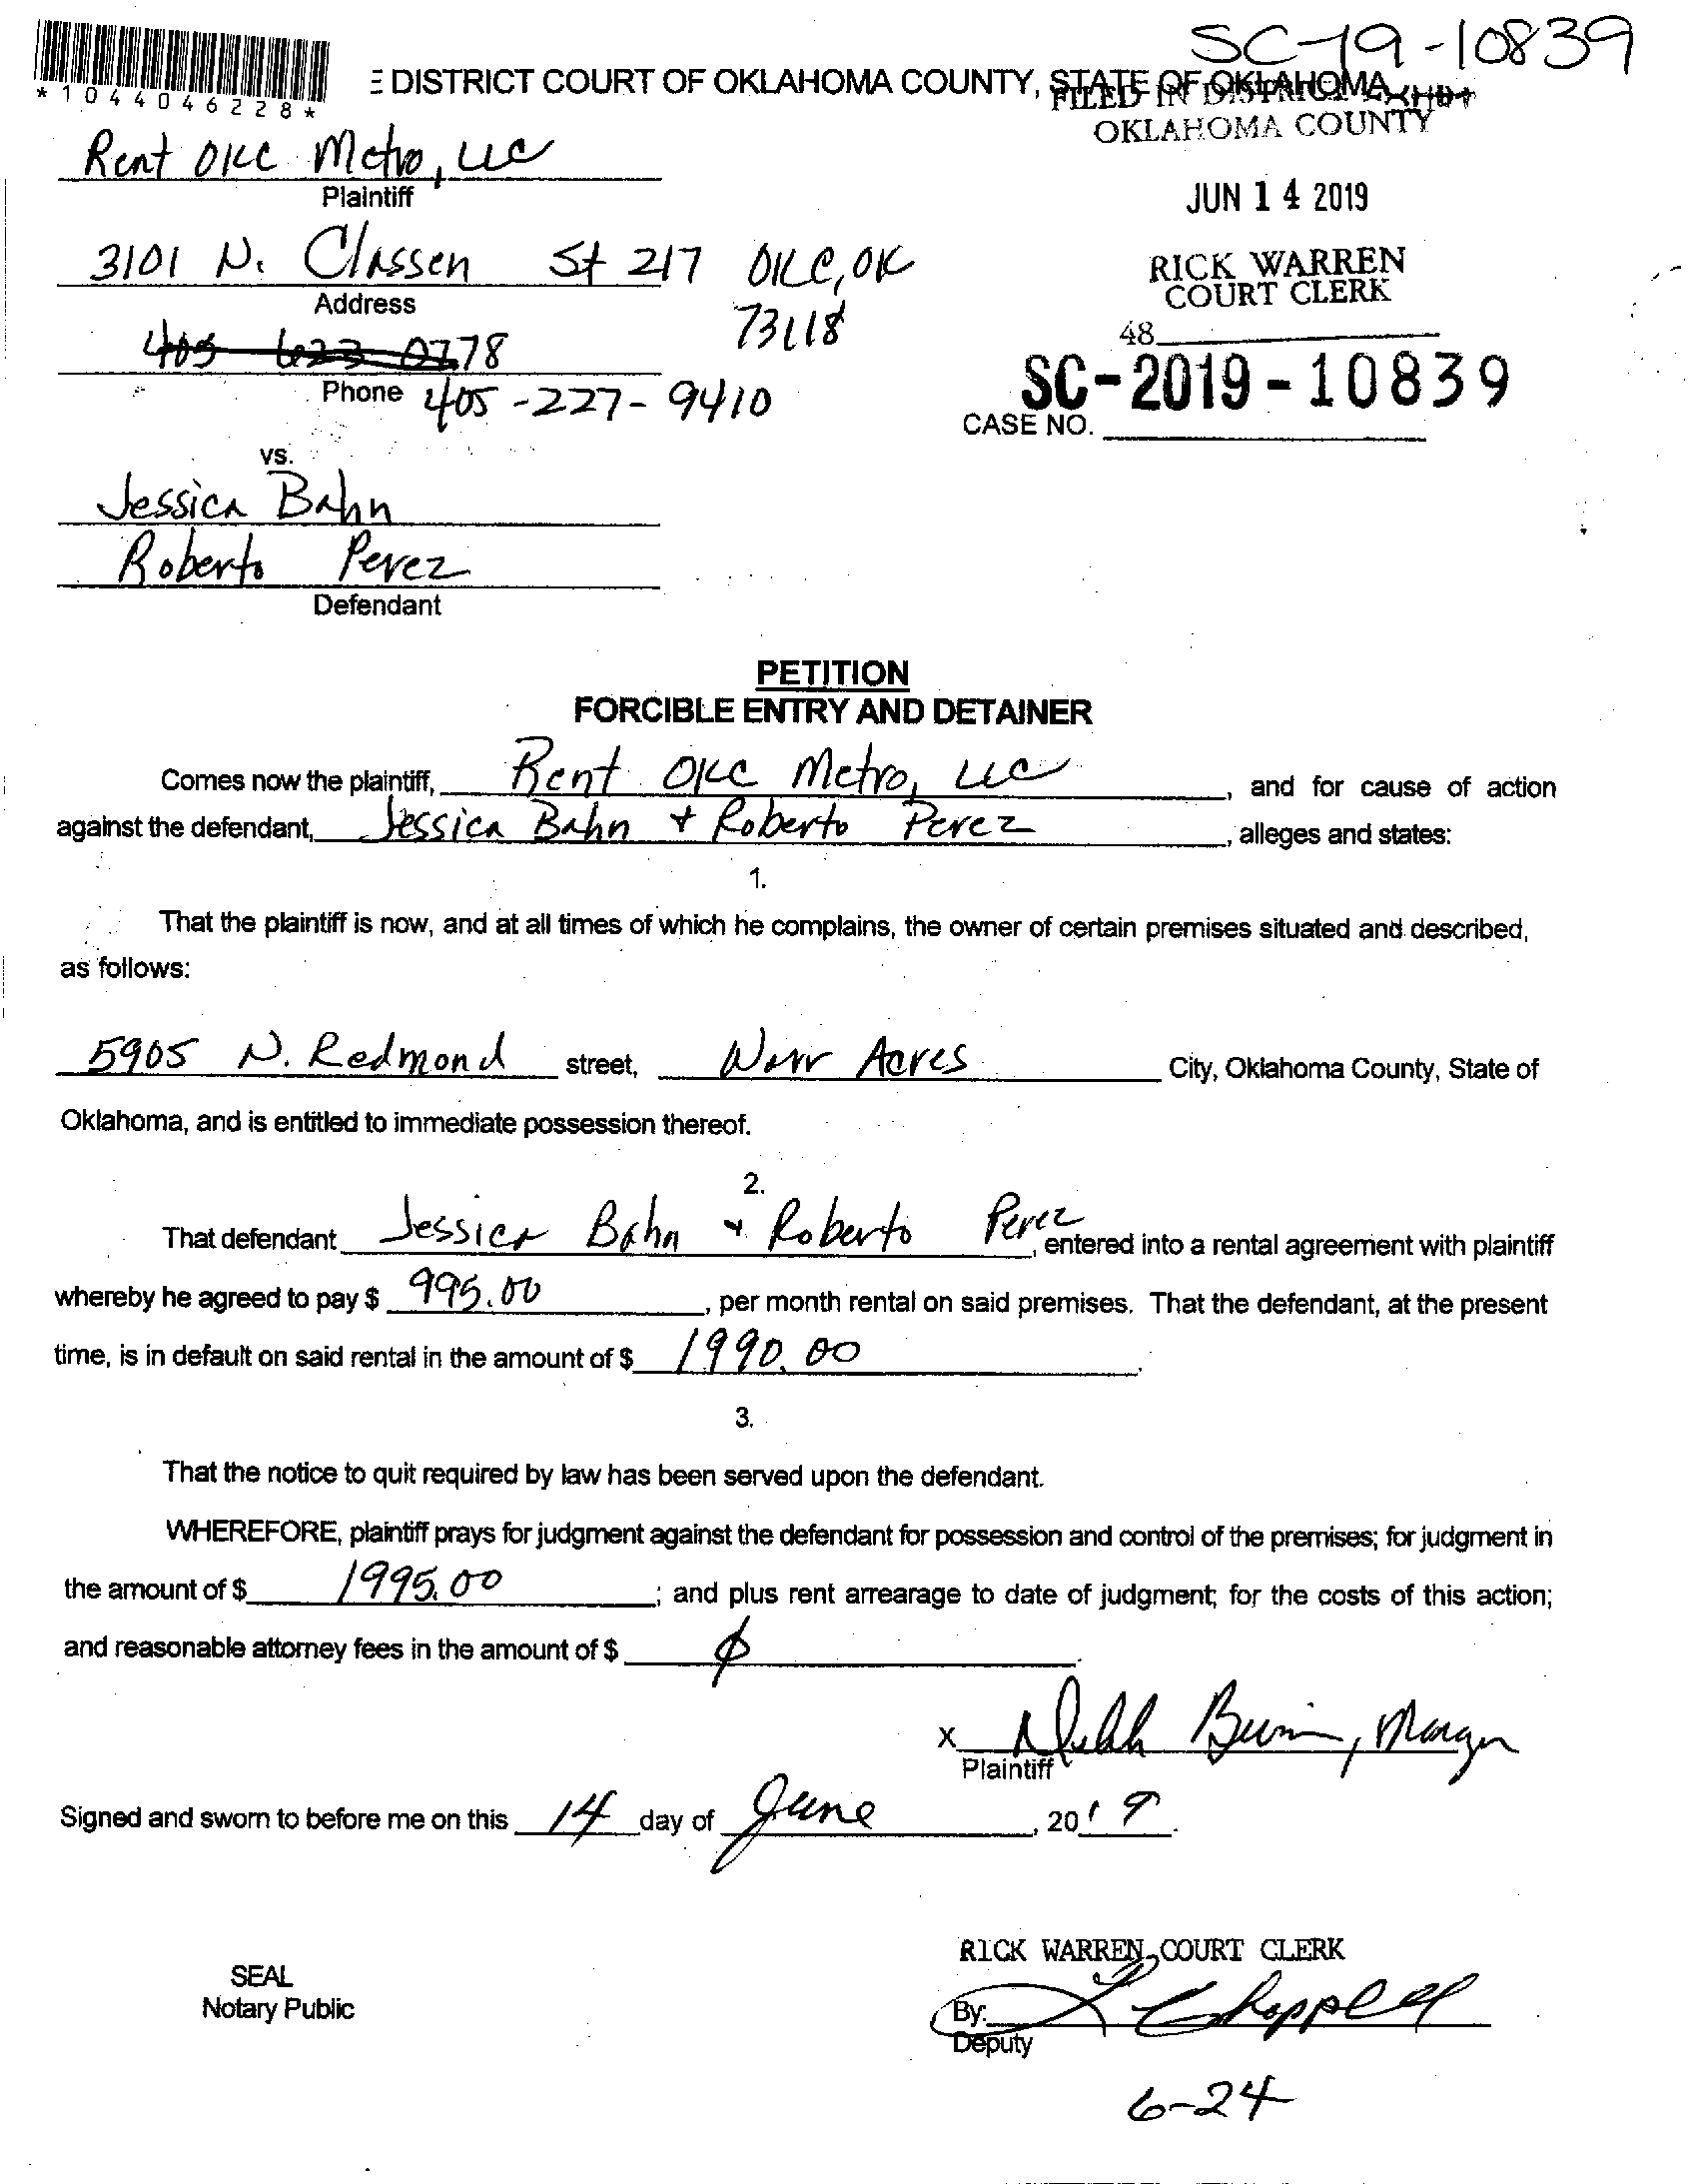 SC-19-10839
*1044046228*
E DISTRICT COURT OF OKLAHOMA COUNTY, STATE OF OKLAHOMA
FILED IN DISTRICT
OKLAHOMA COUNTY
Rent OKC Metro, LLC
Plaintiff
JUN 14 2019
3101 N. Classen St 217 OKC, OK
73118
Address
RICK WARREN
COURT CLERK
405 623 0778
48
Phone 405-227-9410
SC-2019-10839
CASE NO.
vs.
Jessica Bahn
Roberto Perez
Defendant
PETITION
FORCIBLE ENTRY AND DETAINER
Comes now the plaintiff, Rent OKC Metro, LLC, and for cause of action
against the defendant, Jessica Bahn + Roberto Perez, alleges and states:
1.
That the plaintiff is now, and at all times of which he complains, the owner of certain premises situated and described,
as follows:
5905 N. Redmond street, Warr Acres City, Oklahoma County, State of
Oklahoma, and is entitled to immediate possession thereof.
2.
That defendant Jessica Bahn + Roberto Perez, entered into a rental agreement with plaintiff
whereby he agreed to pay $ 995.00, per month rental on said premises. That the defendant, at the present
time, is in default on said rental in the amount of $ 1990.00.
3.
That the notice to quit required by law has been served upon the defendant.
WHEREFORE, plaintiff prays for judgment against the defendant for possession and control of the premises; for judgment in
the amount of $ 1995.00; and plus rent arrearage to date of judgment; for the costs of this action;
and reasonable attorney fees in the amount of $ ϕ.
X
Plaintiff
Signed and sworn to before me on this 14 day of June, 2019.
RICK WARREN, COURT CLERK
SEAL
Notary Public
By: L Chappell
Deputy
6-24